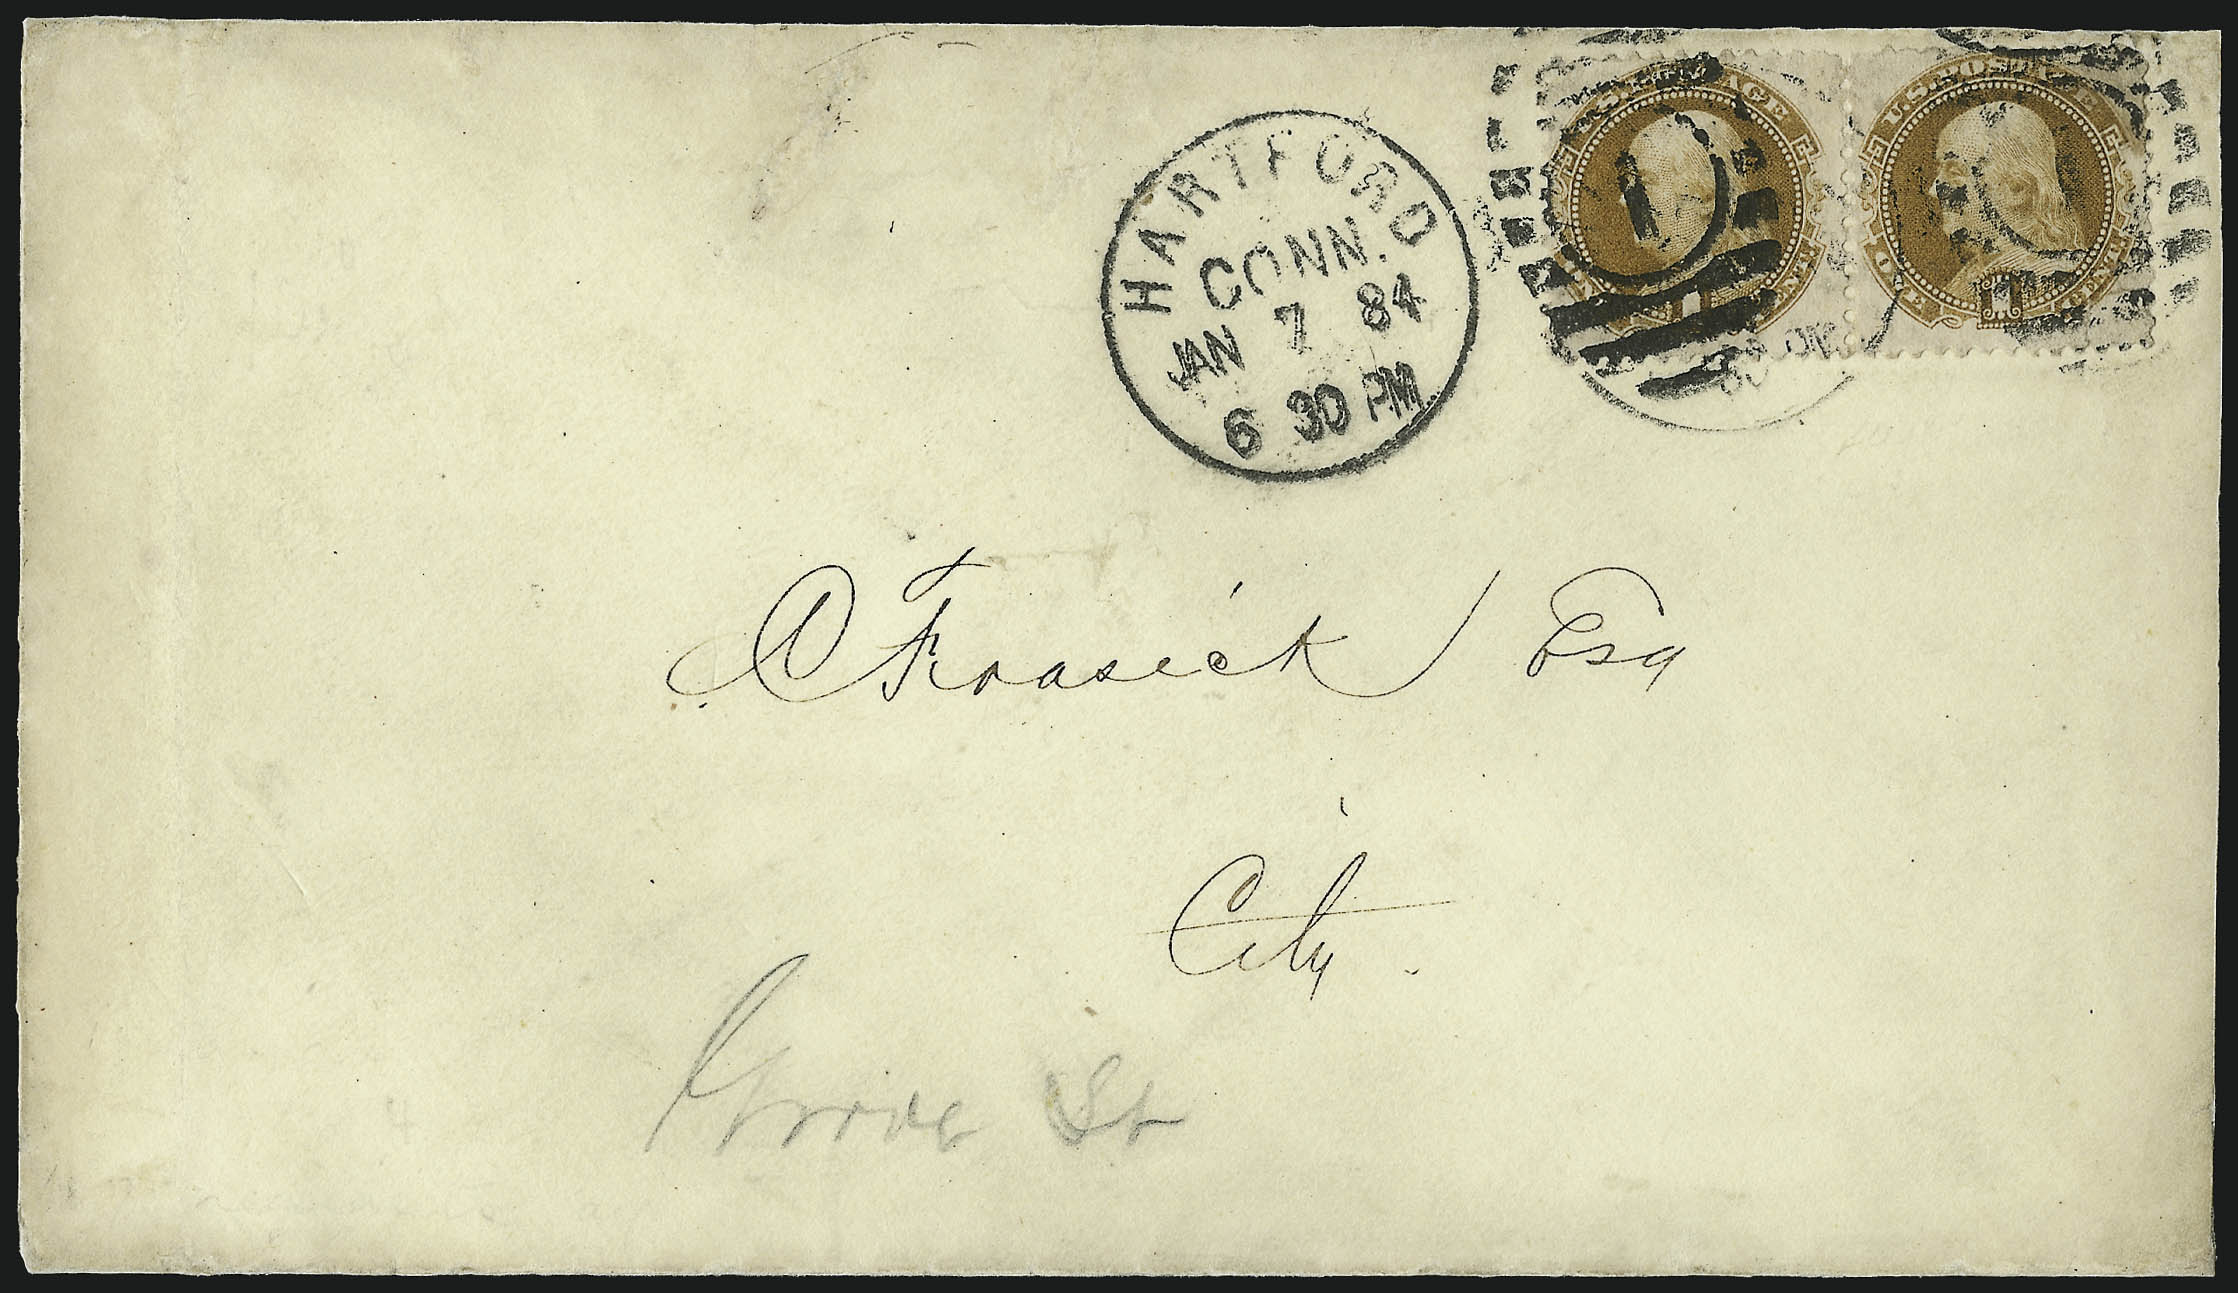 HARTFORD
CONN.
JAN 7 84
6 30 PM
U.S. POSTAGE
ONE 1 CENT
U.S. POSTAGE
ONE 1 CENT
1
Esq
City.
St